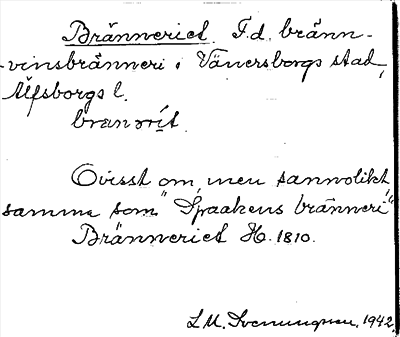 Bränneriet. F.d. bränn-
vinsbränneri i Vänersborgs stad,
Älfsborgs l.
Ovisst om, men sannolikt,
samma som "Spaakens bränneri"
Bränneriet H. 1810.
L.M. Svenungsson. 1942.